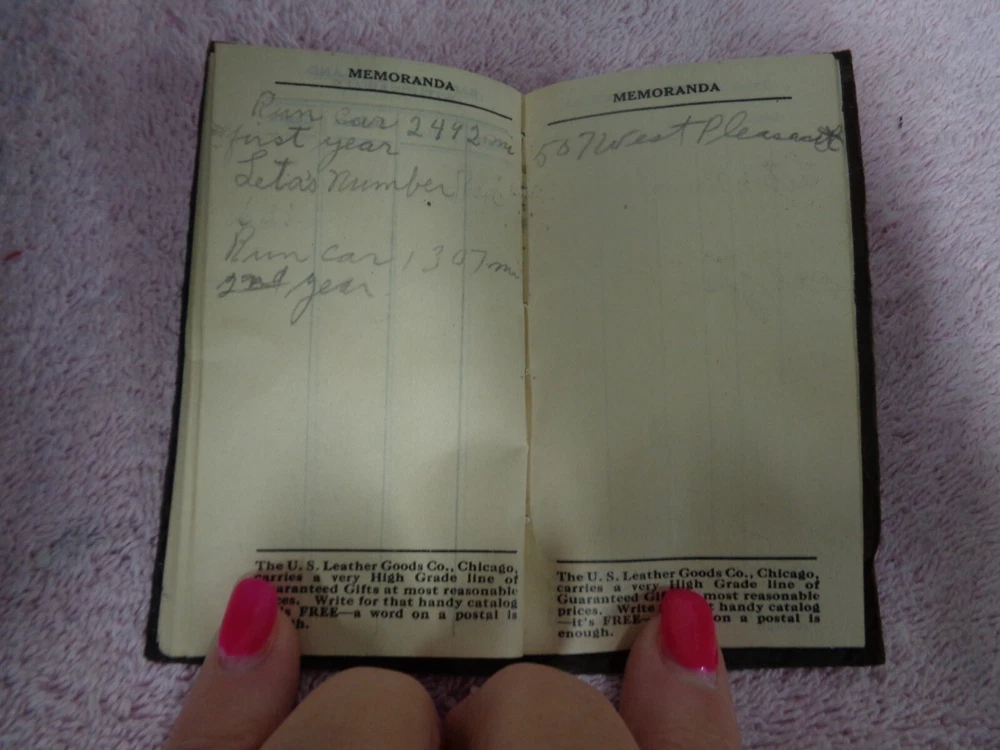 MEMORANDA
Run car 2492 mi
first year
Leta's number
Run car 1307 mi
2nd year
The U. S. Leather Goods Co., Chicago,
carries a very High Grade line of
Guaranteed Gifts at most reasonable
prices. Write for that handy catalog
it's FREE—a word on a postal is
enough.
MEMORANDA
507 West Pleasant
The U. S. Leather Goods Co., Chicago,
carries a very High Grade line of
Guaranteed Gifts at most reasonable
prices. Write handy catalog
—it's FREE— on a postal is
enough.